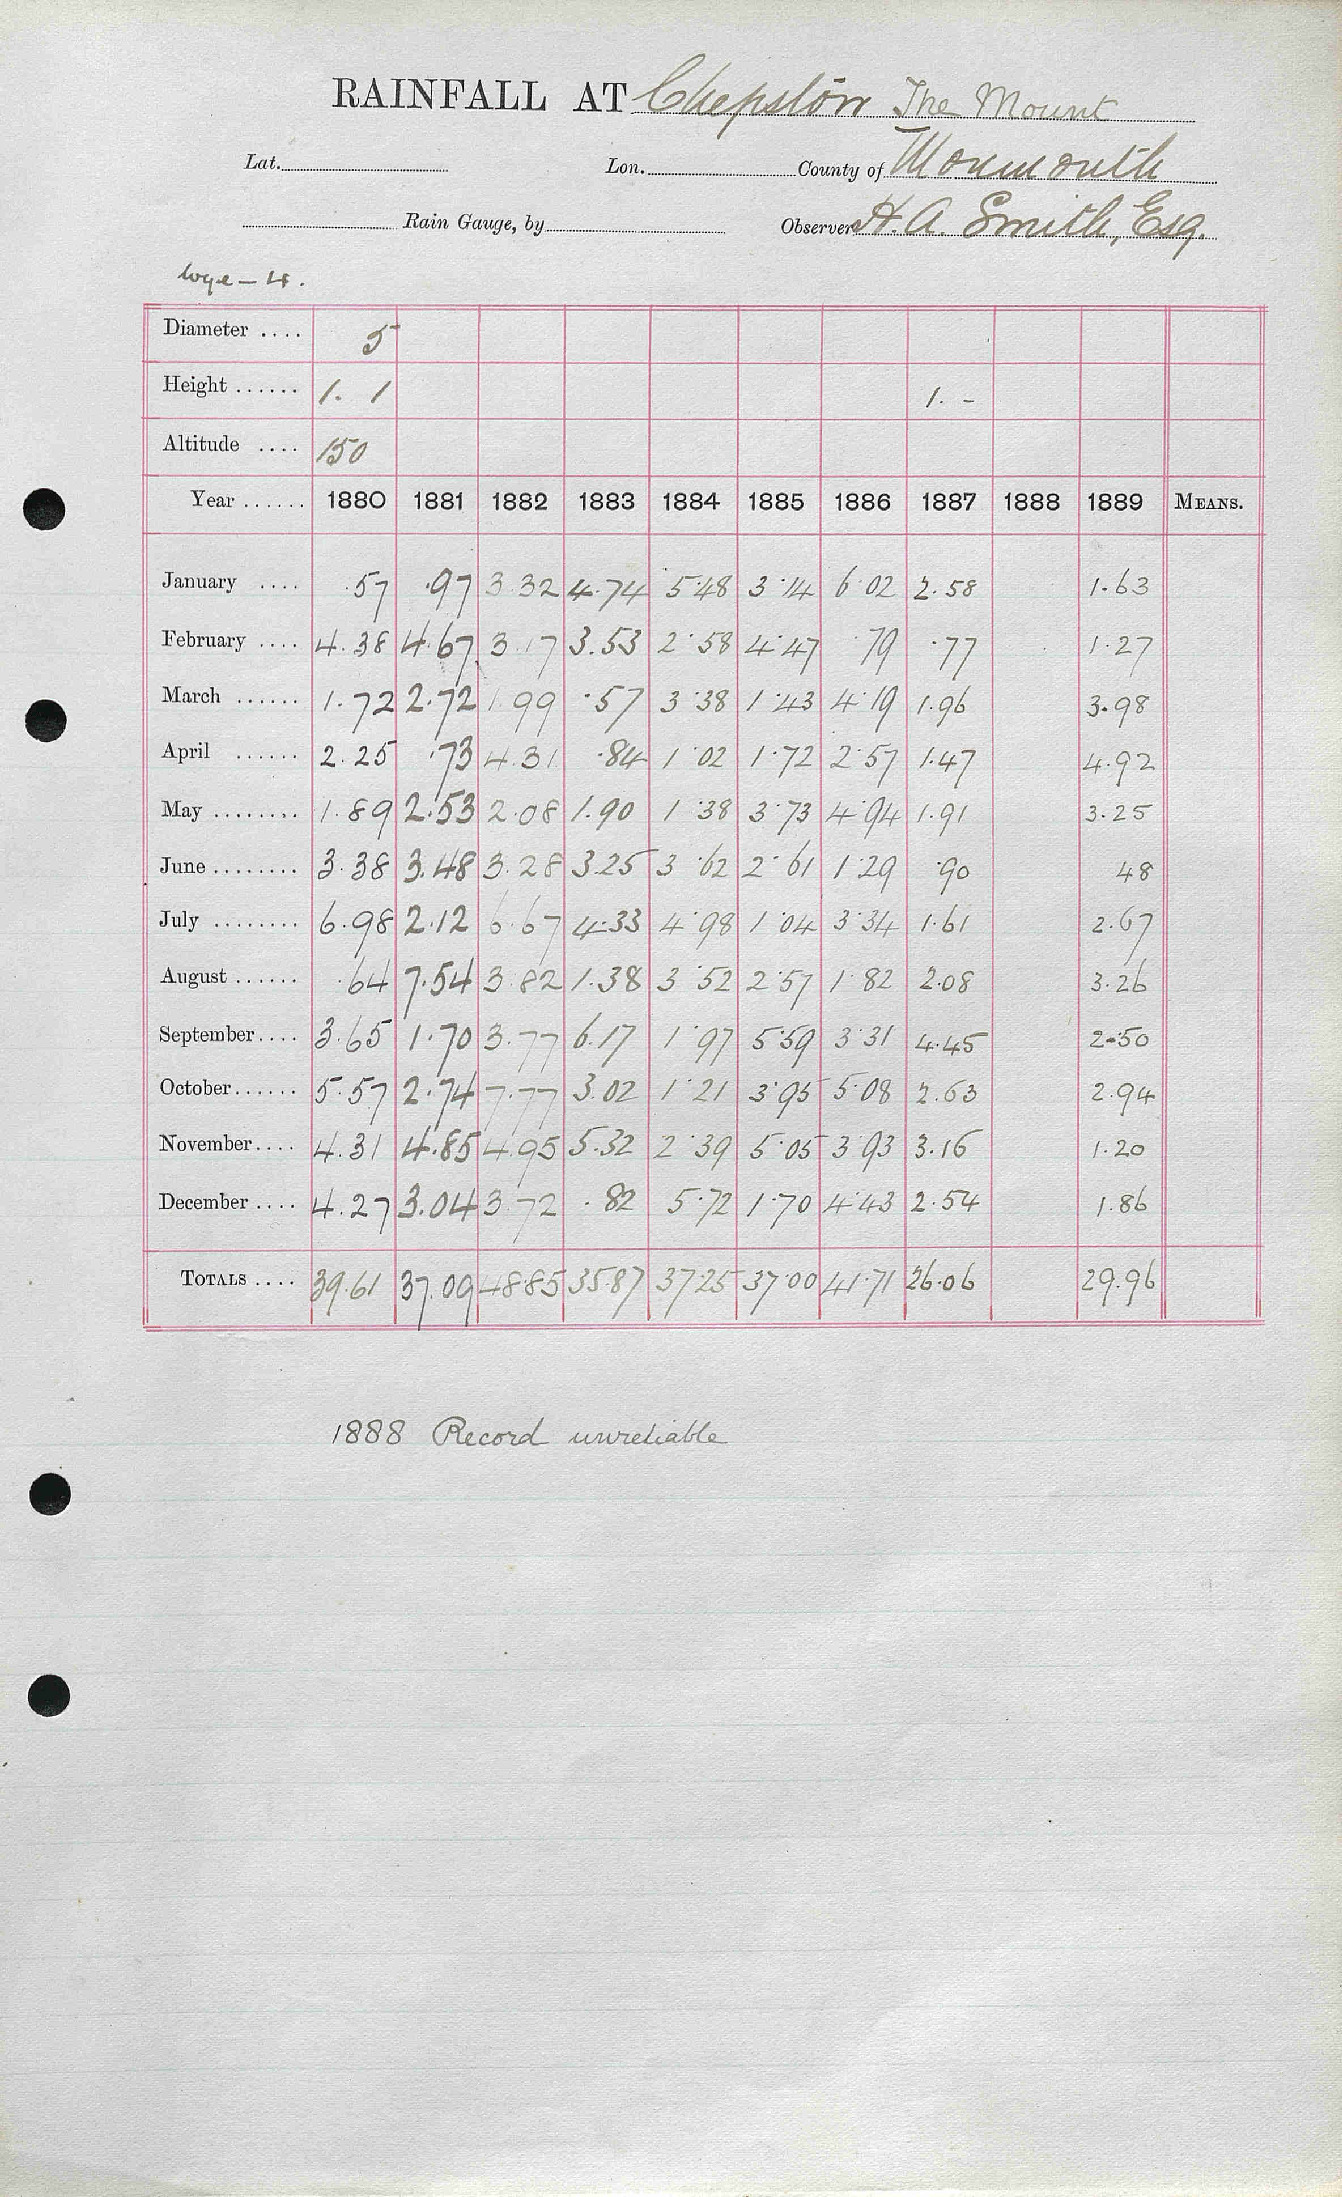 RAINFALL AT Chepstow The Mount
Lat. Lon. County of Monmouth
Rain Gauge, by Observer H. A. Smith, Esq.
Wye – 4.
Diameter .... 5
Height ...... 1. 1 1. -
Altitude .... 150
Year ...... 1880 1881 1882 1883 1884 1885 1886 1887 1888 1889 MEANS.
January .... .57 .97 3.32 4.74 5.48 3.14 6.02 2.58 1.63
February .... 4.38 4.67 3.17 3.53 2.58 4.47 .79 .77 1.27
March ...... 1.72 2.72 1.99 .57 3.38 1.43 4.19 1.96 3.98
April ...... 2.25 .73 4.31 .84 1.02 1.72 2.57 1.47 4.92
May ........ 1.89 2.53 2.08 1.90 1.38 3.73 4.94 1.91 3.25
June ........ 3.38 3.48 3.28 3.25 3.62 2.61 1.29 .90 48
July ........ 6.98 2.12 6.67 4.33 4.98 1.04 3.34 1.61 2.67
August ...... .64 7.54 3.82 1.38 3.52 2.57 1.82 2.08 3.26
September.... 3.65 1.70 3.77 6.17 1.97 5.59 3.31 4.45 2.50
October...... 5.57 2.74 7.77 3.02 1.21 3.95 5.08 2.63 2.94
November.... 4.31 4.85 4.95 5.32 2.39 5.05 3.93 3.16 1.20
December .... 4.27 3.04 3.72 .82 5.72 1.70 4.43 2.54 1.86
TOTALS .... 39.61 37.09 48.85 35.87 37.25 37.00 41.71 26.06 29.96
1888 Record unreliable